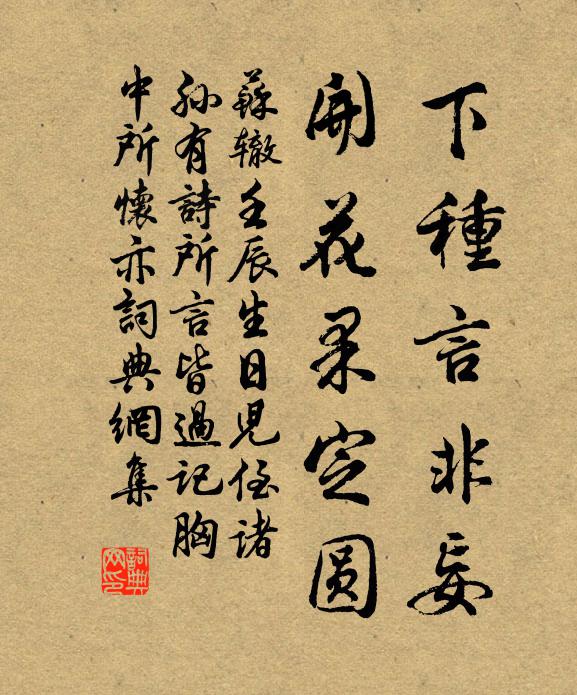 下種言非妄
開花果定圓
蘇轍壬辰生日兒侄諸
孫有詩所言皆過記胸
中所懷亦詞典網集
詞典网印